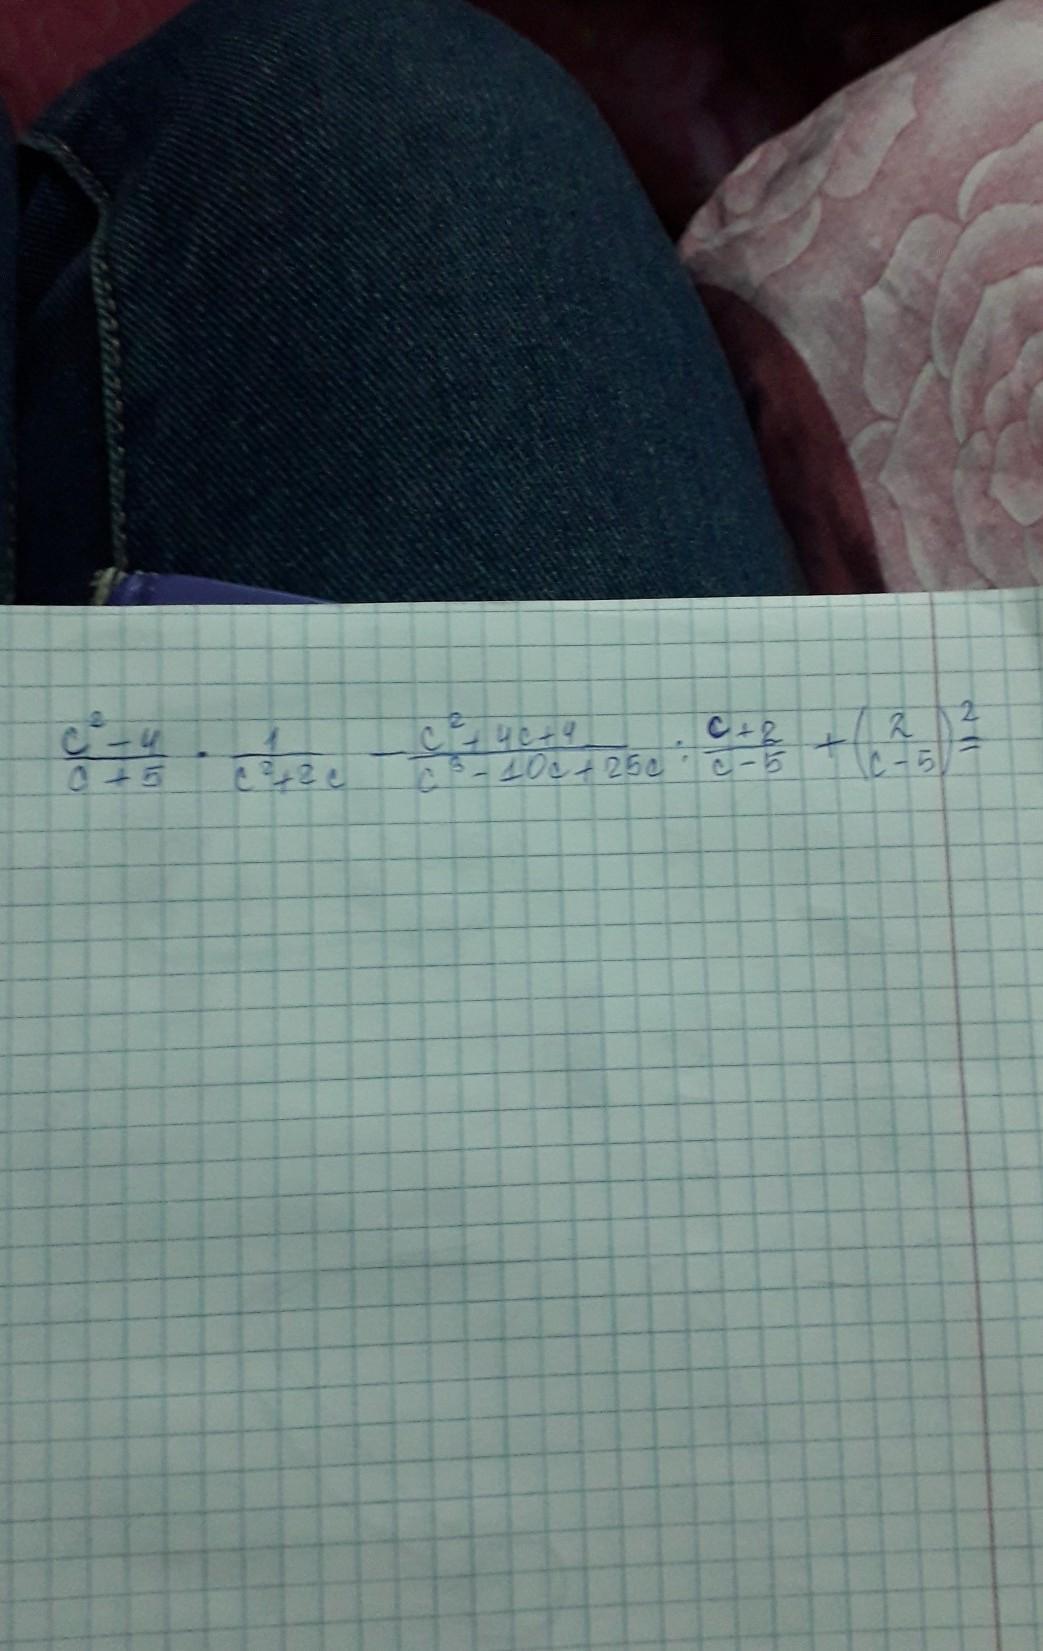 (c² - 4)/(c + 5) · 1/(c² + 2c) - (c² + 4c + 4)/(c³ - 10c + 25c) : (c + 2)/(c - 5) + (2/(c - 5))² =